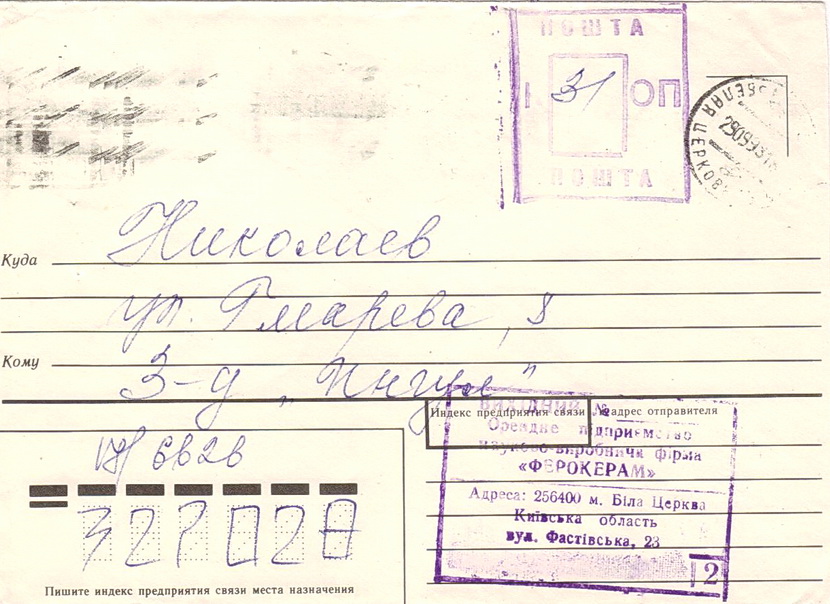 ПОШТА
31
ОП
ПОШТА
БЕЛАЯ ЦЕРКОВ
290993
Куда Николаев
ул. Гмарева, 8
Кому
З-д „Ингул"
Индекс предприятия связи и адрес отправителя
ВИХІДНИЙ №
Орендне підприємство
науково-виробнича фірма
«ФЕРОКЕРАМ»
Адреса: 256400 м. Біла Церква
Київська область
вул. Фастівська, 23
2
327020
Пишите индекс предприятия связи места назначения